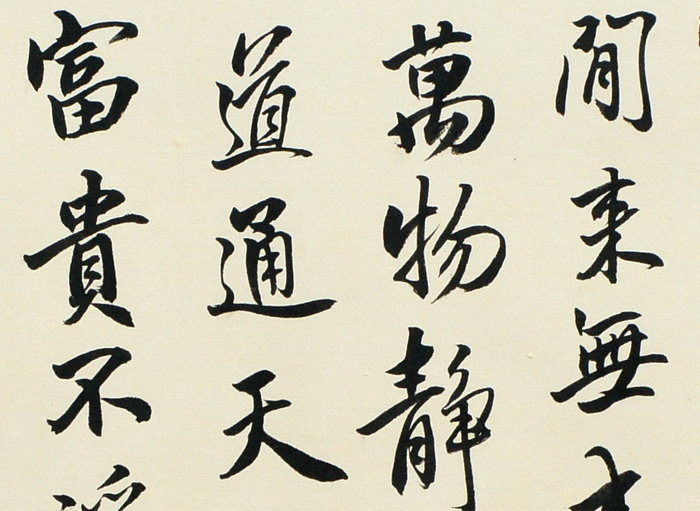 閒来無
萬物静
道通天
富貴不